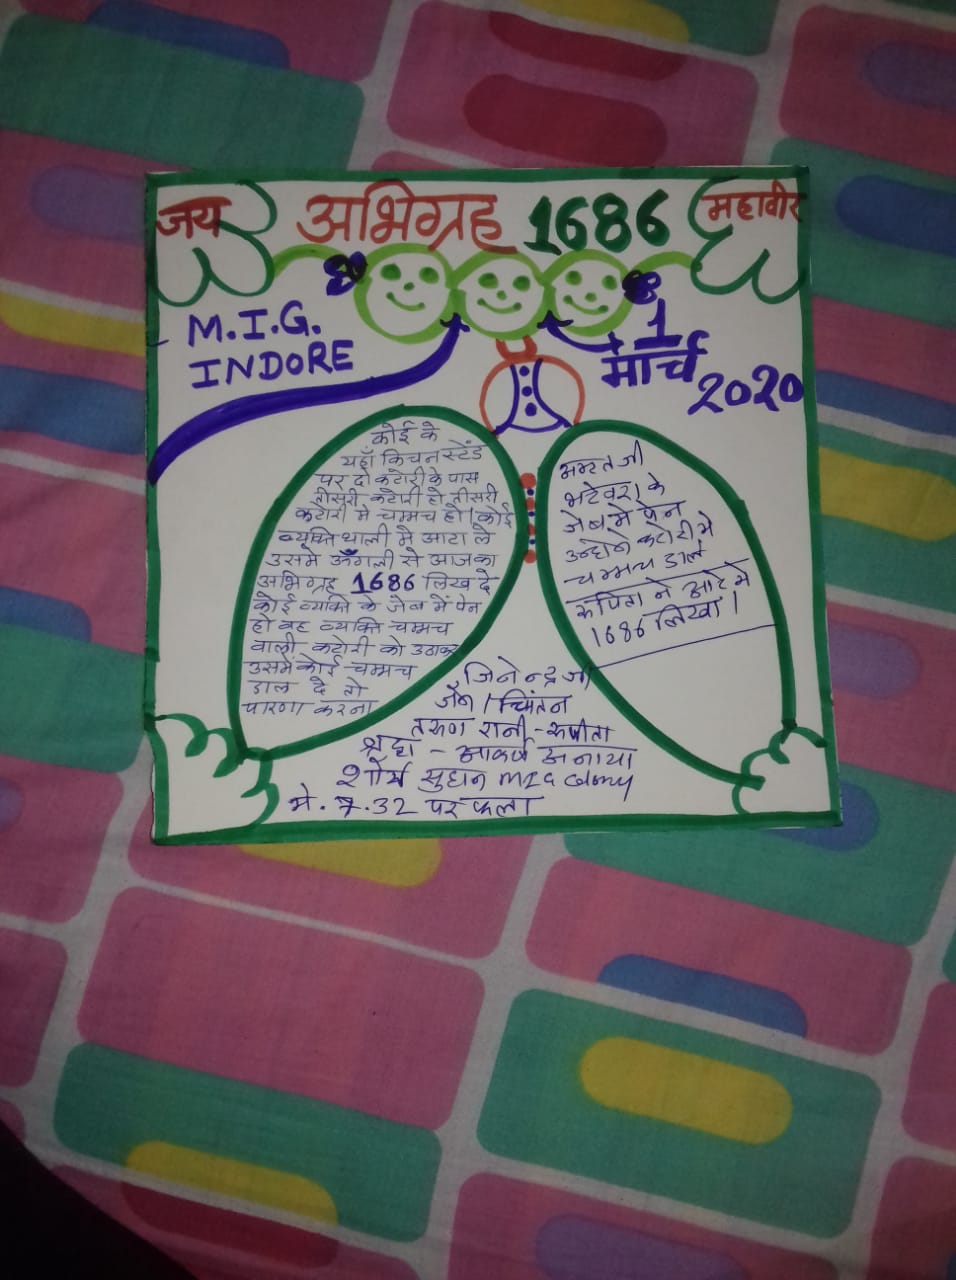 जय
अभिग्रह 1686
महावीर
M.I.G.
INDORE
1
मार्च
2020
कोई के
यहाँ किचन स्टेंड
पर दो कटोरी के पास
तीसरी कटोरी हो तीसरी
कटोरी मे चम्मच हो। कोई
व्यक्ति थाली मे आटा ले
उसमे ऊँगली से आज का
अभिग्रह 1686 लिख दे
कोई व्यक्ति के जेब में पेन
हो वह व्यक्ति चम्मच
वाली कटोरी को उठाकर
उसमे कोई चम्मच
डाल दे तो
पारणा करना
भटेवरा के
जेब मे पेन
उन्होने कटोरी मे
चम्मच डाले
रुपिता ने आटे मे
1686 लिखा।
जिनेन्द्र जी
जैन / चिंतन
तरुण रानी - रुपीता
श्रद्धा - आकर्ष अनाया
शौर्य सुधन MIG colony
मे. 7.32 पर फला